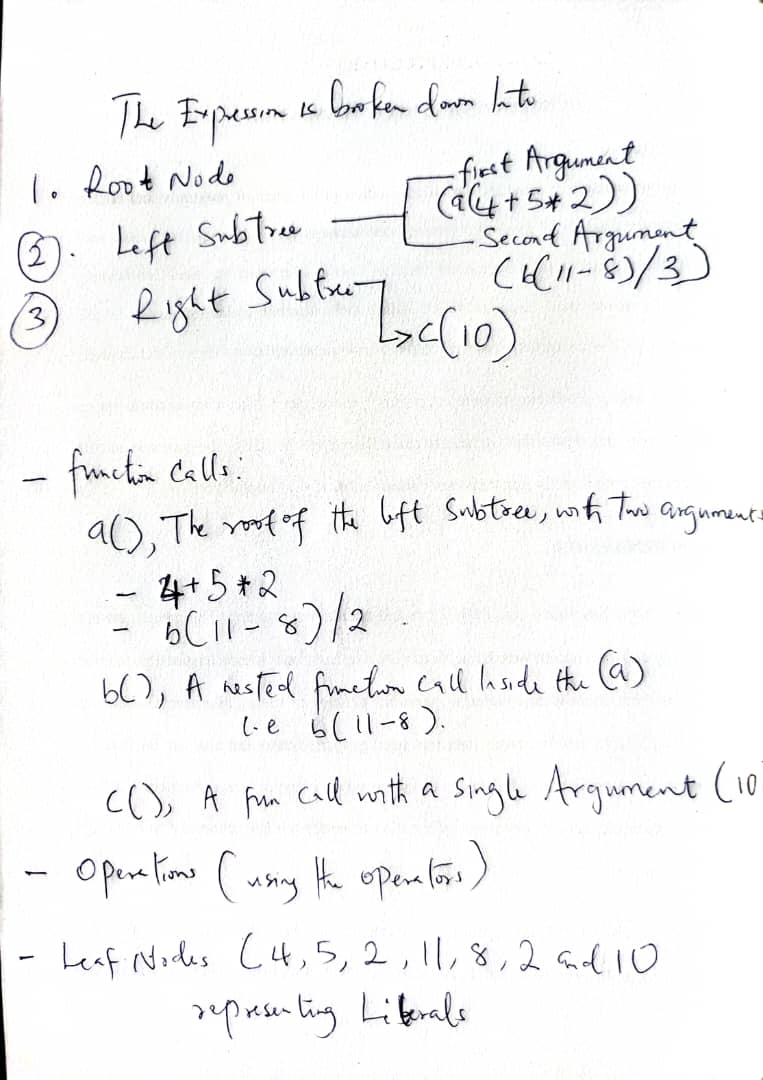 The Expression is broken down Into
1. Root Node
2. Left Subtree
first Argument
(a(4+5*2))
Second Argument
(b(11-8)/3)
3 Right Subtree
c(10)
- function Calls:
a(), The root of the left Subtree, with Two arguments
- 4+5*2
- b(11-8)/2
b(), A nested function call Inside the (a)
i.e b(11-8).
c(), A fun call with a Single Argument (10
- Operations (using the operators)
- Leaf Nodes (4, 5, 2, 11, 8, 2 and 10
representing Literals